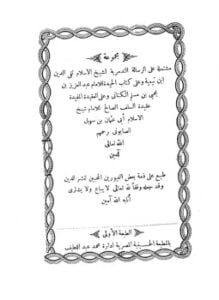 مجموعة
مشتملة على الرسالة التدمرية لشيخ الاسلام تقى الدين
ابن تيمية وعلى كتاب الحيدة للامام عبد العزيز بن
يحيى بن مسلم الكنانى وعلى العقيدة المفيدة
عقيدة السلف الصالح للامام شيخ
الاسلام أبى عثمان بن سهيل
الصابونى رحمهم
الله تعالى
آمين
طبع على نفقة بعض الغيورين المحبين لنشر الدين
وقد جعله وقفا لله تعالى لا يباع ولا يشترى
أثابه الله آمين
الطبعة الأولى
بالمطبعة الحسينية المصرية ادارة محمد عبد اللطيف